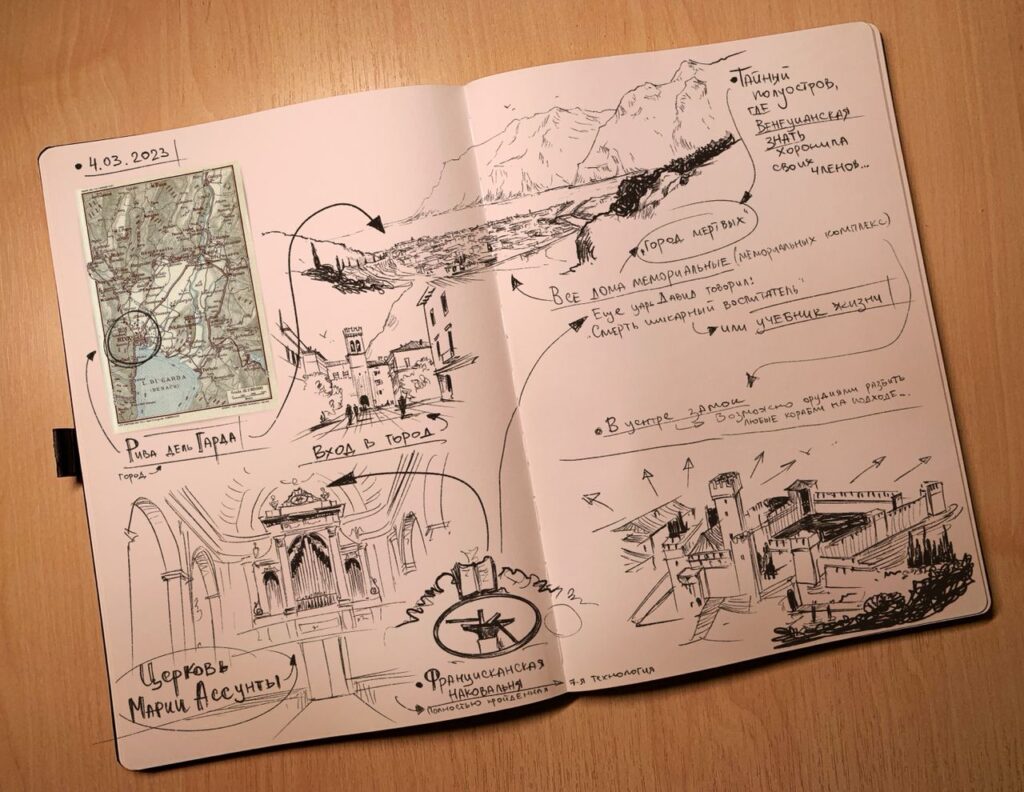 • 4.03.2023
RIVA
L. DI GARDA
(BENACO)
Рива дель Гарда
город
Вход в город
Церковь
Марии Ассунты
• Францисканская
наковальня
Полностью пройденная → 7-я технология
• Тайный
полуостров,
где
Венецианская
знать
хоронила
своих
членов...
"Город мертвых"
Все дома мемориальные (мемориальных комплекс)
Еще царь Давид говорил:
"Смерть шикарный воспитатель"
или учебник жизни
• В центре замок
Возможно орудиями разбить
любые корабли на подходе...